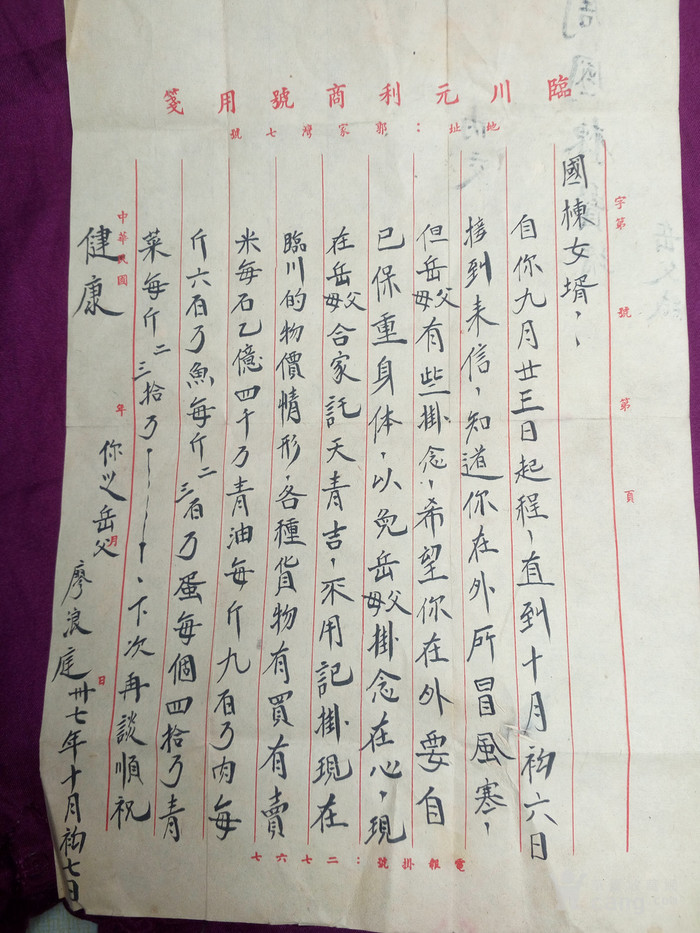 臨川元利商號用箋
地址：郭家灣七號
字第　號　第　頁
國棟女壻，，
自你九月廿三日起程，直到十月初六日
接到来信，知道你在外所冒風塞，
但岳父母有些掛念，希望你在外要自
已保重身体，以免岳父母掛念在心，現
在岳父母合家託天青吉，不用記掛現在
臨川的物價情形，各種貨物有買有賣
米每石乙億四千万青油每斤九百万肉每
斤六百万魚每斤二三百万蛋每個四拾万青
菜每斤二三拾万、、、、、下次再談順祝
健康
中華民國　年　月　日
你岳父　廖浪庭卅七年十月初七日
電報掛號：二七六七